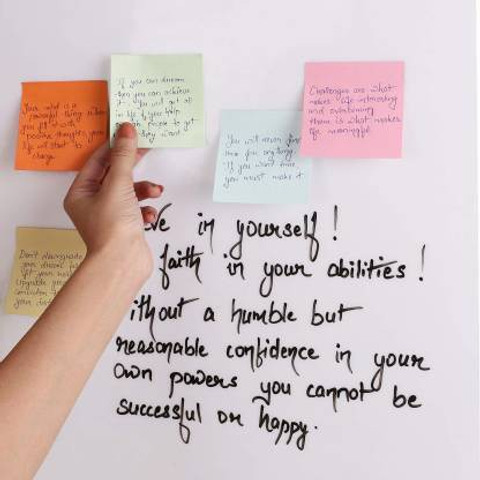 Your mind is a
powerful thing when
you fill it with
positive thoughts your
life will start to
change
If you can dream
then you can achieve
it. You will get all
in life if you help
people to get
they want
You will never find
time for anything
If you want time,
you must make it
Challenges are what
makes life interesting
and overcoming
them is what makes
life meaningful
Don't downgrade
your dream
fit your
in yourself!
faith in your abilities!
ithout a humble but
reasonable confidence in your
own powers you cannot be
successful or happy.